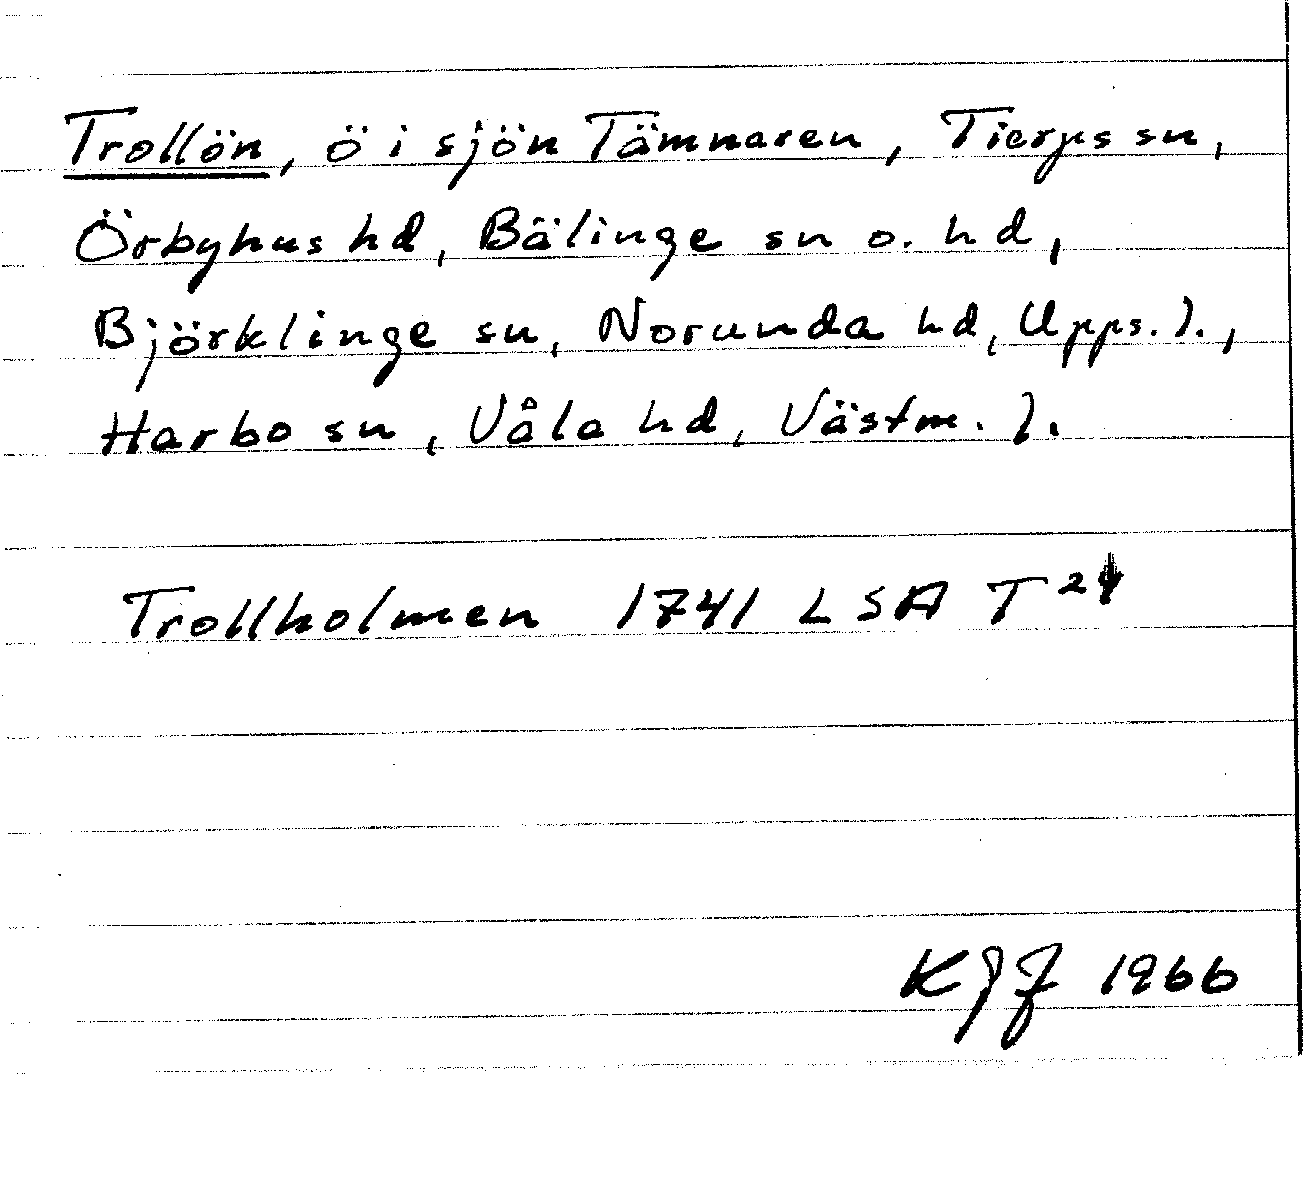 Trollön, ö i sjön Tämnaren, Tierps sn,
Örbyhus hd, Bälinge sn o. hd,
Björklinge sn, Norunda hd, Upps. l.,
Harbo sn, Våla hd, Västm. l.
Trollholmen 1741 LSA T 24
KJF 1966